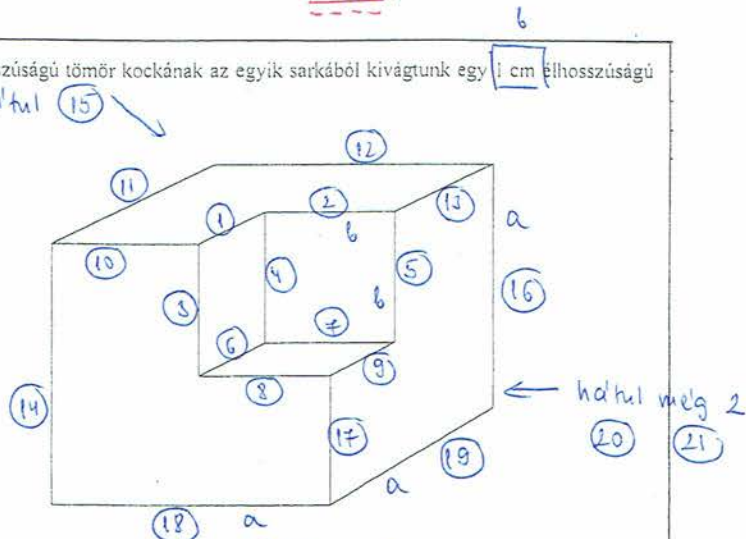 b
zúságú tömör kockának az egyik sarkából kivágtunk egy 1 cm élhosszúságú
15
12
11
1
2
13
a
b
10
4
5
3
b
16
7
6
9
8
14
hátul még 2
17
20
21
19
a
18
a